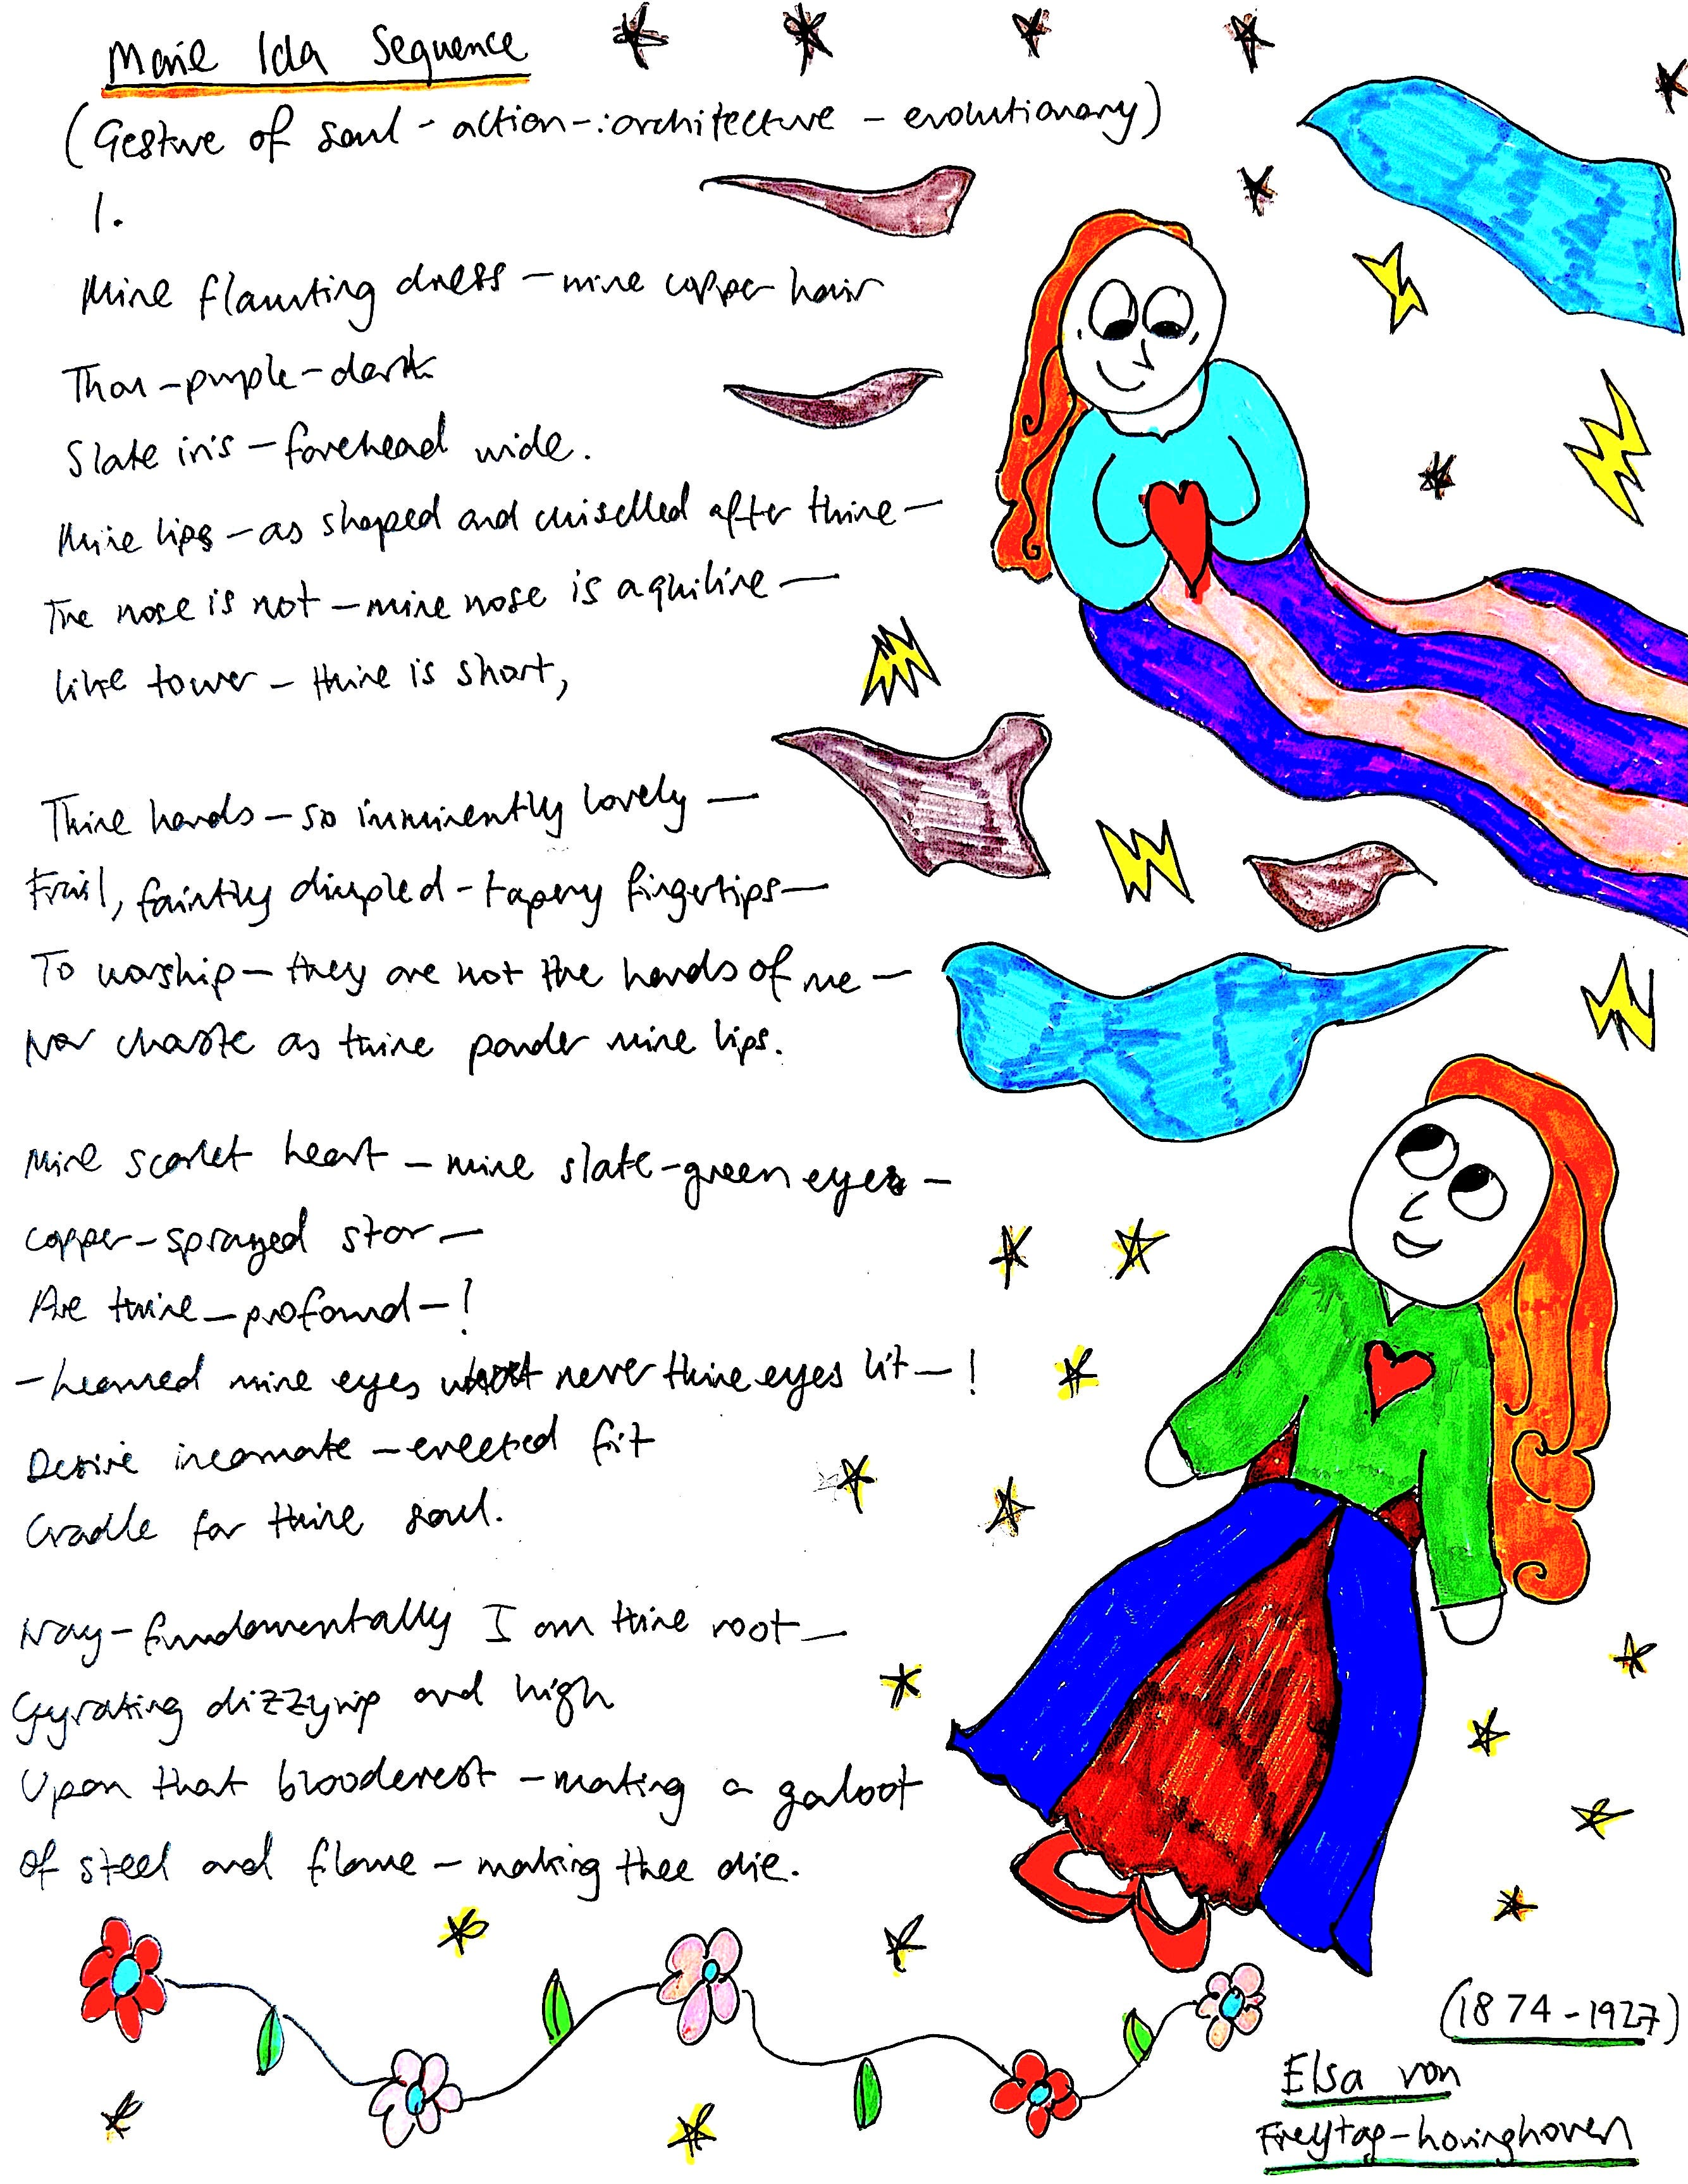 Marie Ida Sequence
(Gesture of soul - action -: architecture - evolutionary)
1.
Mine flaunting dress – mine copper hair
Thou – purple – dark
Slate iris – forehead wide.
Mine lips – as shaped and chiselled after thine –
The nose is not – mine nose is aquiline –
like tower – thine is short,
Thine hands – so imminently lovely –
Frail, faintly dimpled – tapery fingertips –
To worship – they are not the hands of me –
Nor chaste as thine ponder mine lips.
Mine scarlet heart – mine slate-green eyes –
copper-sprayed star –
Are thine – profound – !
– learned mine eyes what never thine eyes lit – !
Desire incarnate – erected fit
Cradle for thine soul.
Nay – fundamentally I am thine root –
Gyrating dizzying and high
Upon that bloodcrest – making a galoot
of steel and flame – making thee die.
(1874-1927)
Elsa von
Freytag-horinghoven